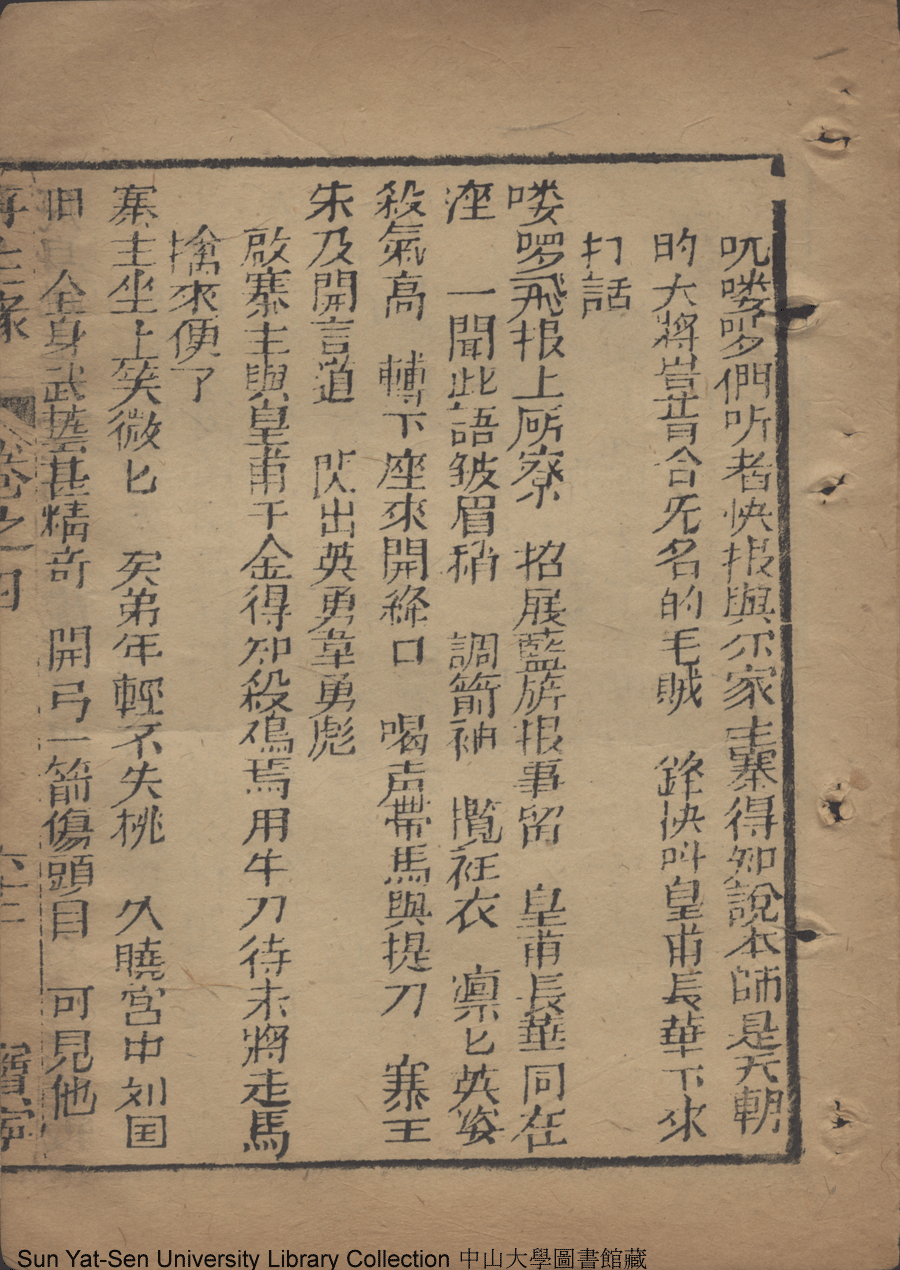 呪喽啰們听者快报與尔家主寨得知說本師是天朝
的大將豈肯合无名的毛賊 鋒快叫皇甫長華下來
打話
喽啰飛报上所寮 招展藍旂报事留 皇甫長華同在
座 一聞此語皱眉稍 調箭袖 攬征衣 凛匕英姿
殺氣高 轉下座來開絳口 喝声帶馬與提刀 寨主
未及開言道 閃出英勇韋勇彪
啟寨主與皇甫千金得知殺鴆焉用牛刀待末將走馬
擒來便了
寨主坐上笑微匕 矣弟年輕不失桃 久曉宫中刘国
旧 全身武藝甚精奇 開弓一箭傷頭目 可見他
再生緣 卷之四
Sun Yat-Sen University Library Collection 中山大學圖書館藏